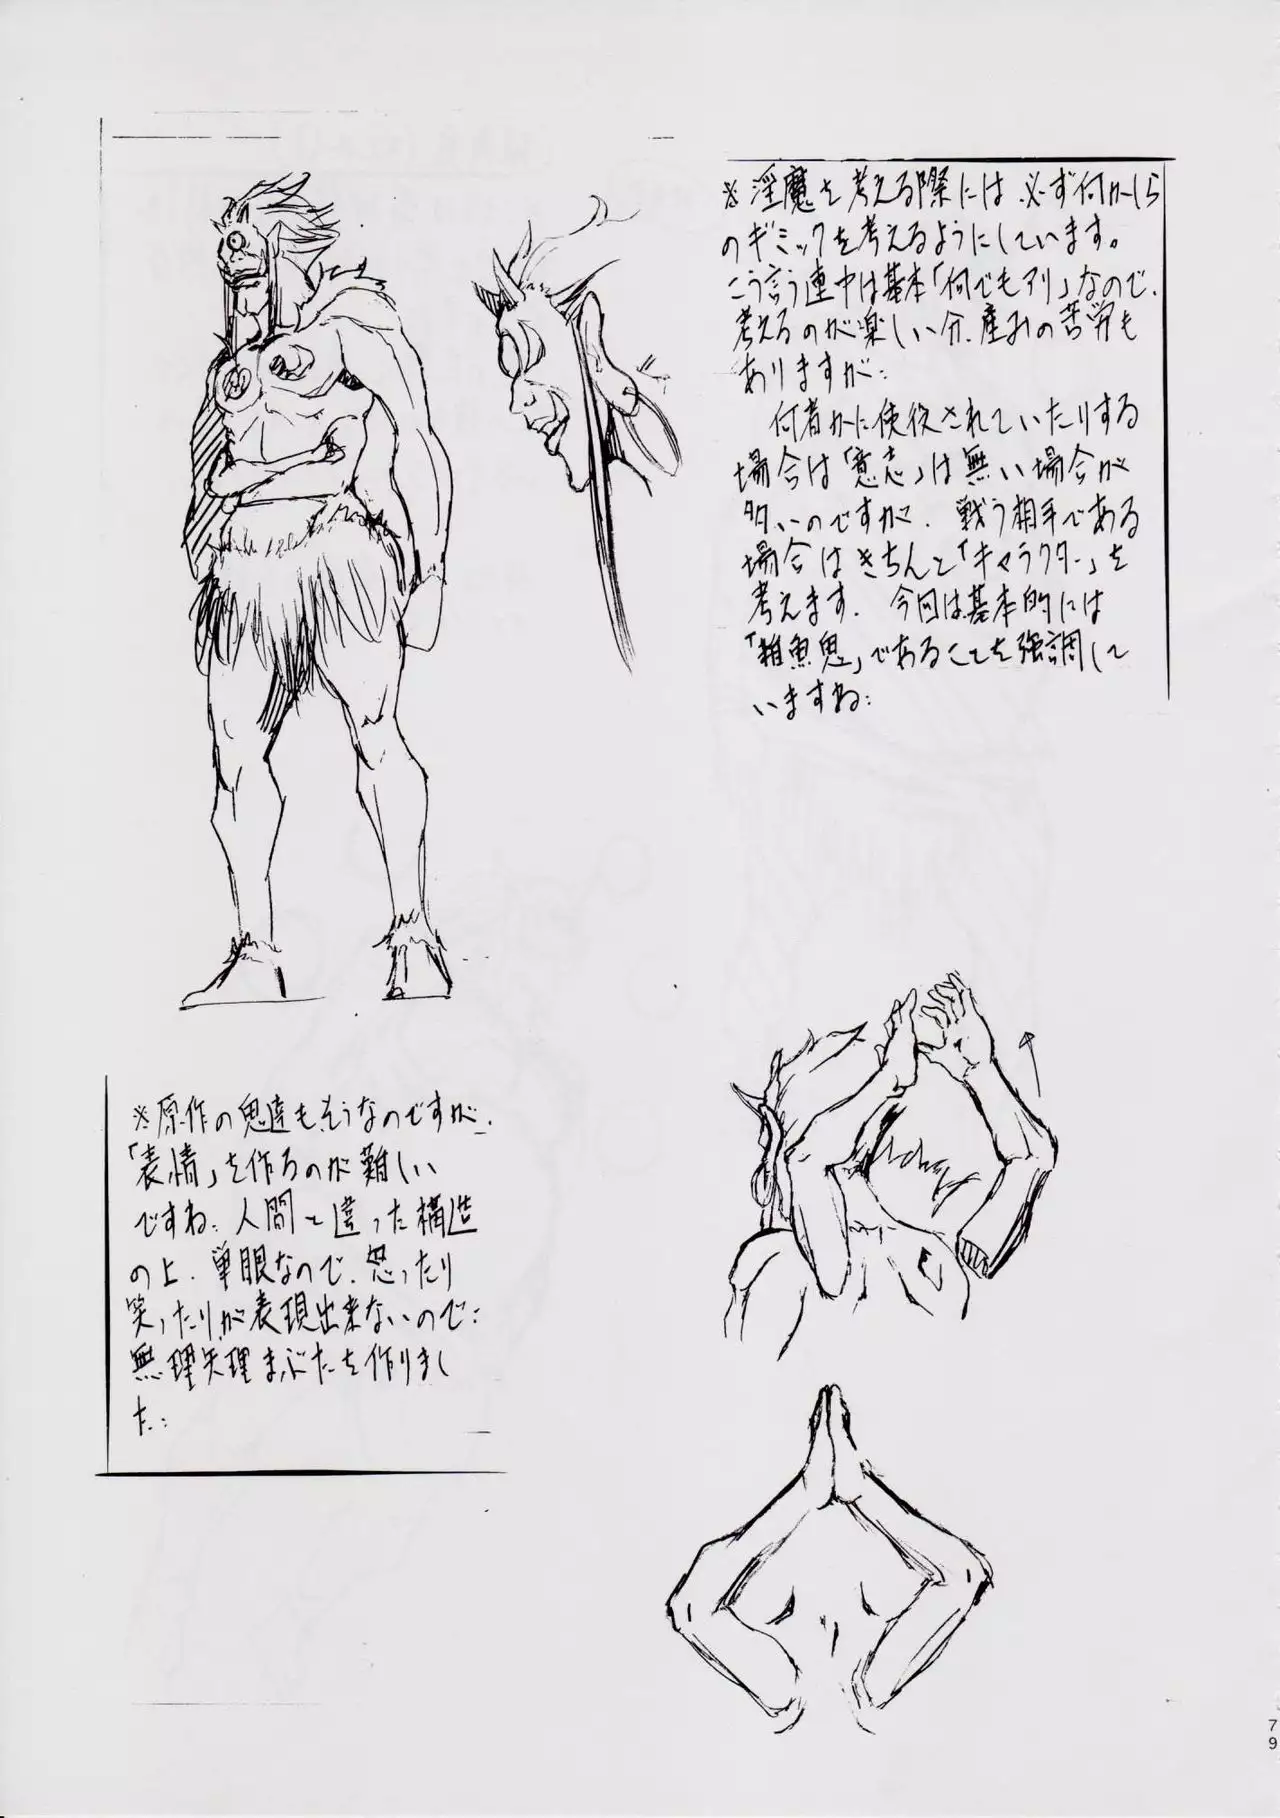 ※淫魔を考える際には必ず何かしら
のギミックを考えるようにしています。
こう言う連中は基本「何でもアリ」なので、
考えるのが楽しい分、産みの苦労も
ありますが…
何者かに使役されていたりする
場合は「意志」は無い場合が
多いのですが、戦う相手である
場合はきちんと「キャラクター」を
考えます。今回は基本的には
「雑魚鬼」であることを強調して
いますね…
※原作の鬼達もそうなのですが、
「表情」を作るのが難しい
ですね…人間と違った構造
の上、単眼なので、怒ったり
笑ったりが表現出来ないので…
無理矢理まぶたを作りまし
た…
79